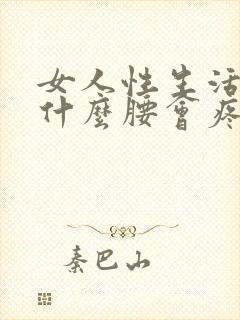 女人性生活
什麼腰會疼
秦巴山